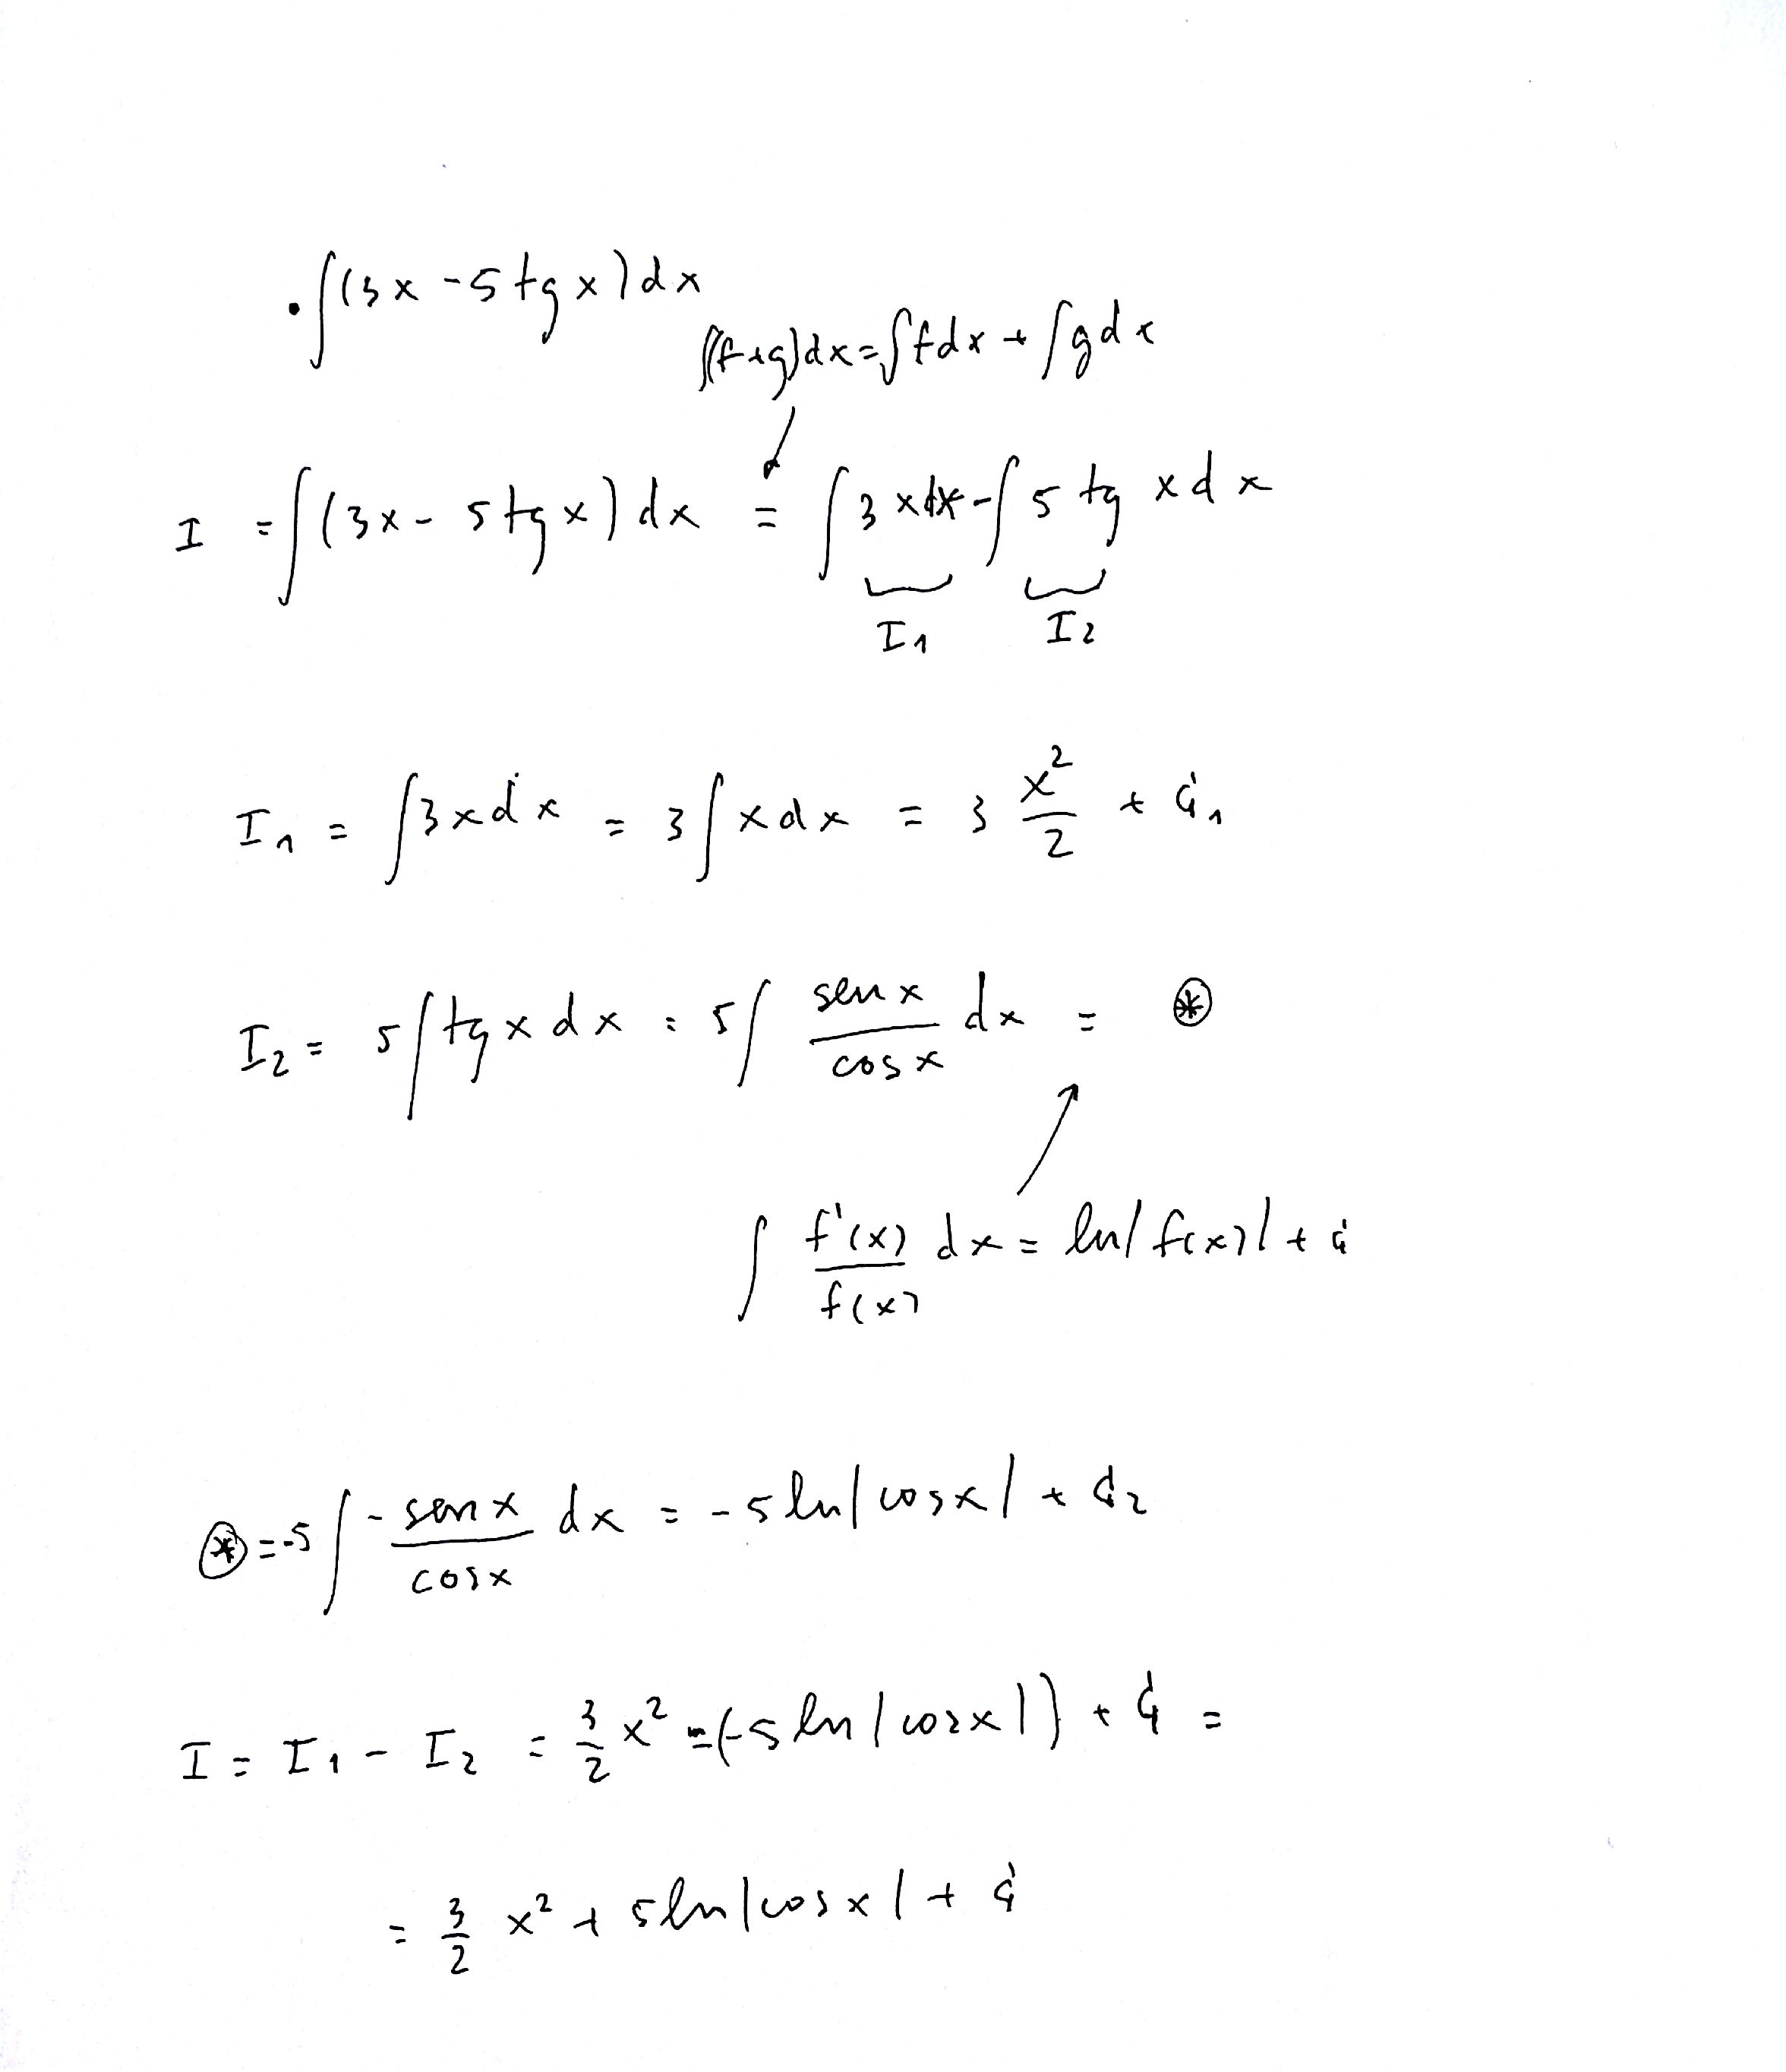 • ∫(3x - 5 tg x) dx
∫(f+g)dx = ∫f dx + ∫g dx
I = ∫(3x - 5 tg x) dx = ∫3x dx - ∫5 tg x dx
I₁ I₂
I₁ = ∫3x dx = 3∫x dx = 3 x²/2 + C₁
I₂ = 5∫tg x dx = 5∫ sen x/cos x dx = ⊛
∫ f'(x)/f(x) dx = ln|f(x)| + C
⊛ = -5∫ -sen x/cos x dx = -5 ln|cos x| + C₂
I = I₁ - I₂ = 3/2 x² - (-5 ln|cos x|) + C =
= 3/2 x² + 5 ln|cos x| + C